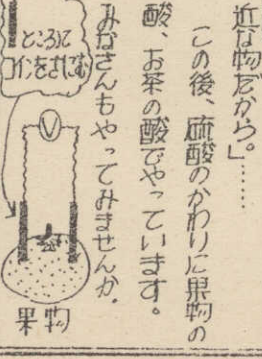 近な物だから。」……
この後、硫酸のかわりに果物の
酸、お茶の酸でやっています。
みなさんもやってみませんか。
ところに
コインをはさむ
V
果物